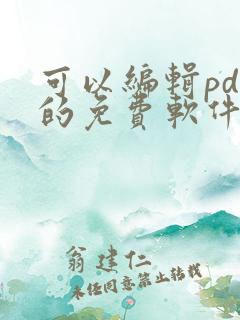 可以編輯pd
的免費軟件
翁建仁
未经同意禁止转载